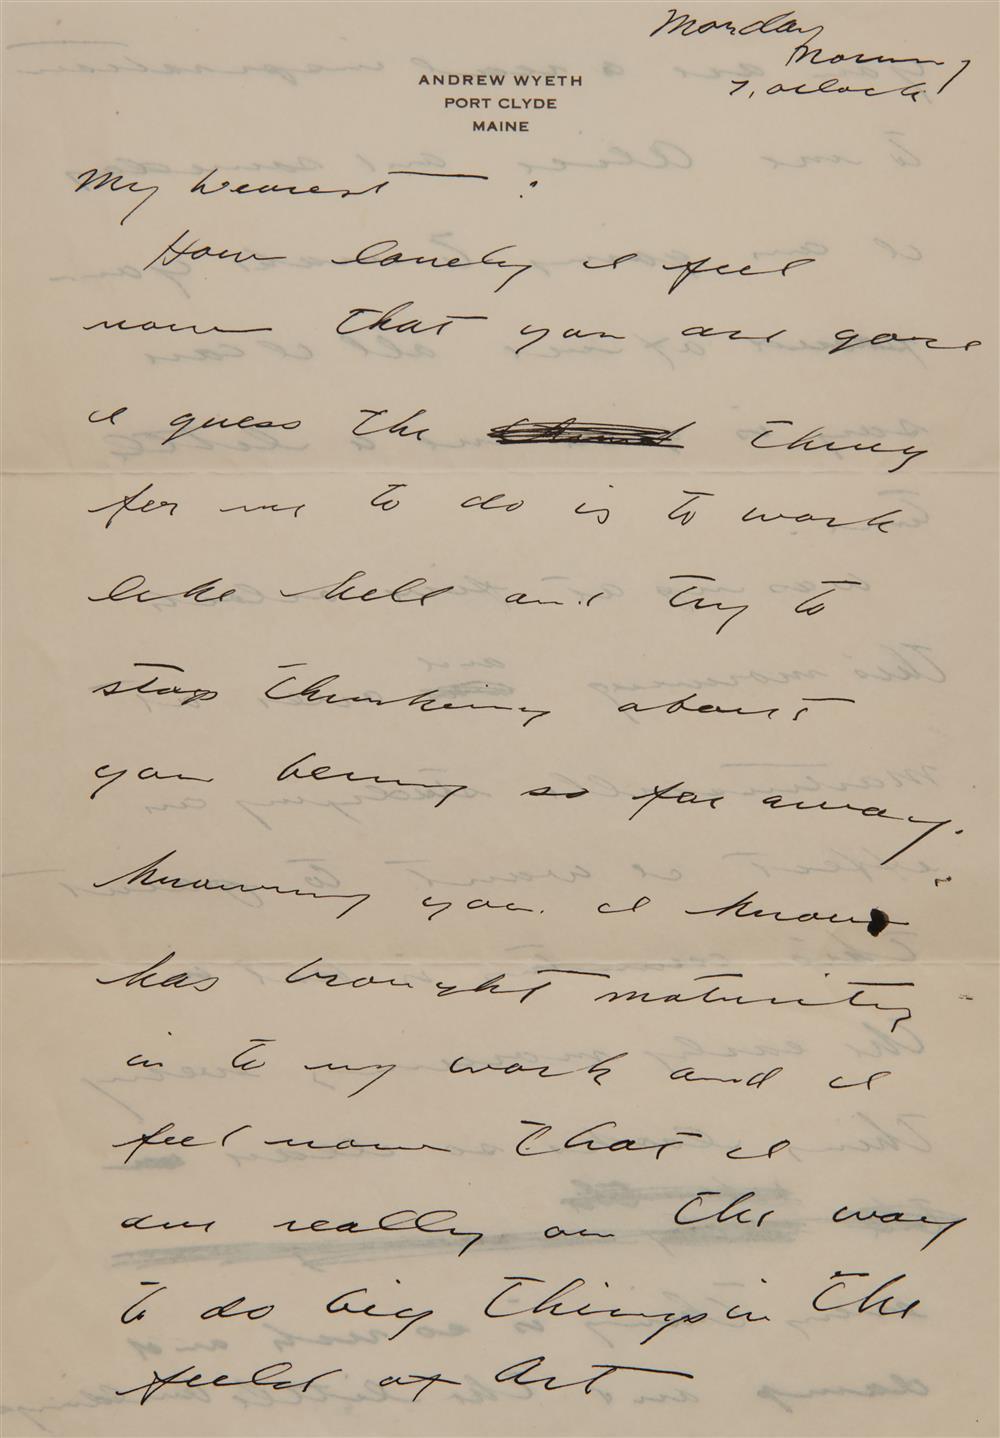 Monday
Morning
7, oclock
ANDREW WYETH
PORT CLYDE
MAINE
My Dearest :
How lonely I feel
now that you are gone
I guess the thing
for me to do is to work
like hell and try to
stop thinking about
you being so far away.
Knowing you. I know
has brought maturity
in to my work and I
feel now that I
am really on the way
to do big things in the
field of Art